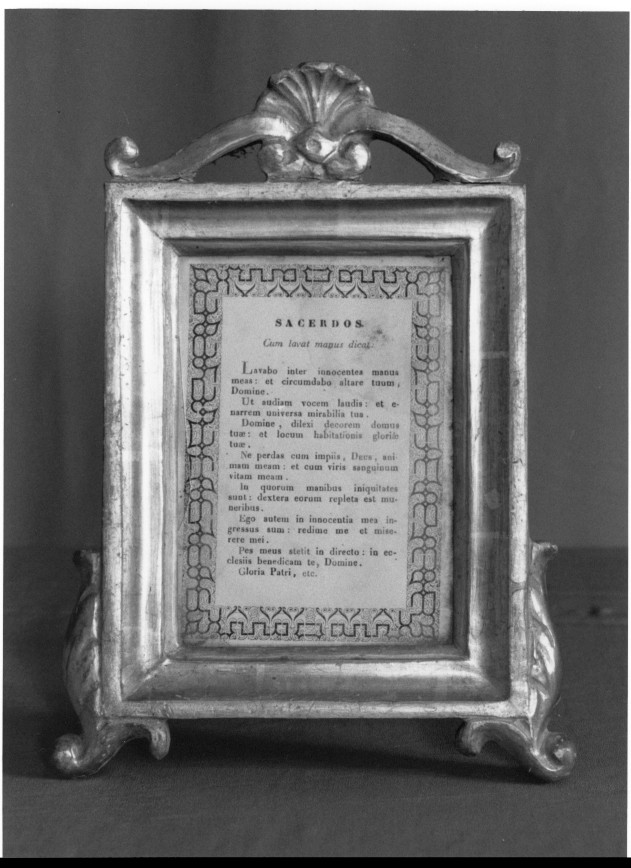 SACERDOS.
Cum lavat manus dicat.
Lavabo inter innocentes manus
meas: et circumdabo altare tuum,
Domine.
Ut audiam vocem laudis: et e-
narrem universa mirabilia tua.
Domine, dilexi decorem domus
tuæ: et locum habitationis gloriæ
tuæ.
Ne perdas cum impiis, Deus, ani-
mam meam: et cum viris sanguinum
vitam meam.
In quorum manibus iniquitates
sunt: dextera eorum repleta est mu-
neribus.
Ego autem in innocentia mea in-
gressus sum: redime me et mise-
rere mei.
Pes meus stetit in directo: in ec-
clesiis benedicam te, Domine.
Gloria Patri, etc.